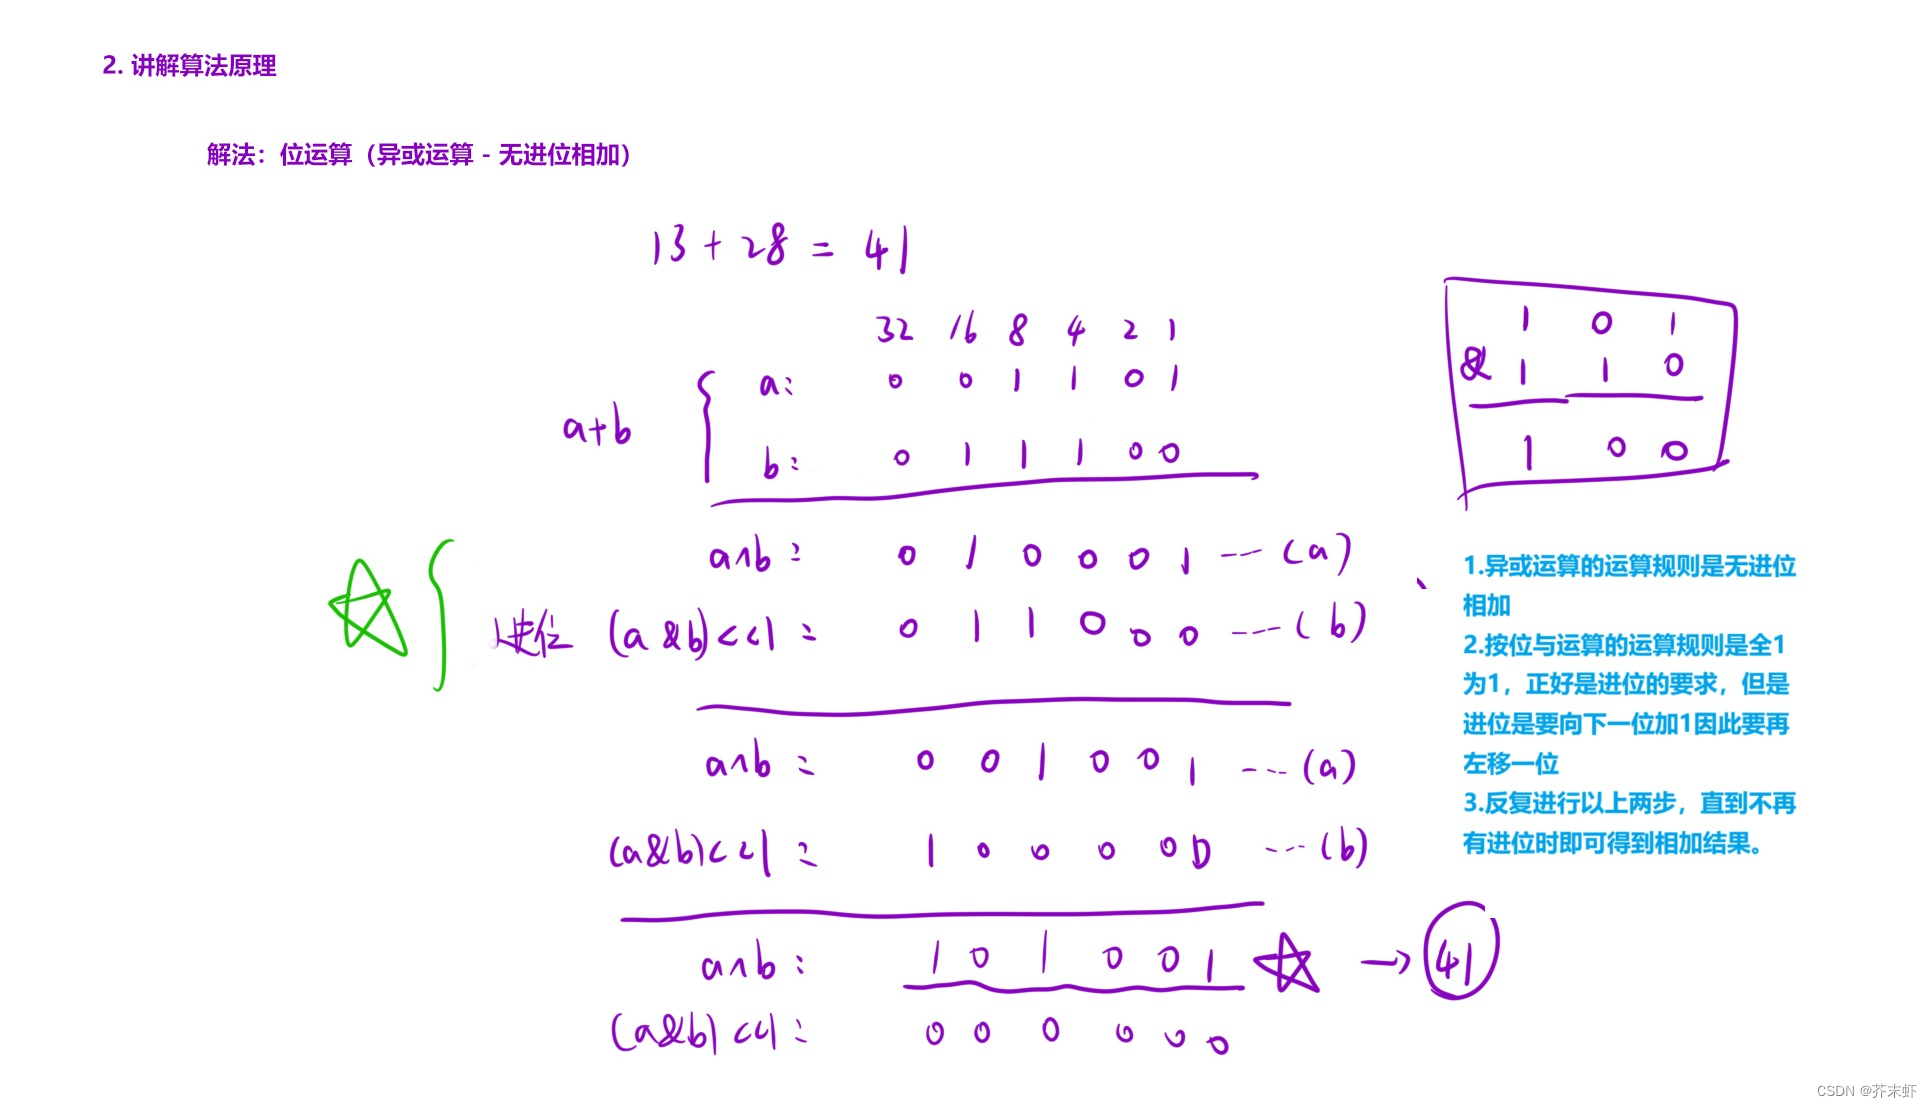 2. 讲解算法原理
解法：位运算（异或运算 - 无进位相加）
13 + 28 = 41
32 16 8 4 2 1
a: 0 0 1 1 0 1
a+b
b: 0 1 1 1 0 0
a^b: 0 1 0 0 0 1 --- (a)
进位 (a&b)<<1: 0 1 1 0 0 0 --- (b)
a^b: 0 0 1 0 0 1 --- (a)
(a&b)<<1: 1 0 0 0 0 0 --- (b)
a^b: 1 0 1 0 0 1 → 41
(a&b)<<1: 0 0 0 0 0 0
1 0 1
& 1 1 0
1 0 0
1.异或运算的运算规则是无进位
相加
2.按位与运算的运算规则是全1
为1，正好是进位的要求，但是
进位是要向下一位加1因此要再
左移一位
3.反复进行以上两步，直到不再
有进位时即可得到相加结果。
CSDN @芥末虾